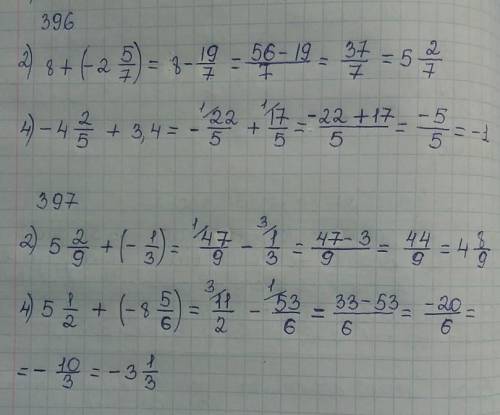 396
2) 8 + (-2 5/7) = 8 - 19/7 = (56 - 19)/7 = 37/7 = 5 2/7
4) -4 2/5 + 3,4 = - ¹⁄ 22/5 + ¹⁄ 17/5 = (-22 + 17)/5 = -5/5 = -1
397
2) 5 2/9 + (- 1/3) = ¹⁄ 47/9 - ³⁄ 1/3 = (47 - 3)/9 = 44/9 = 4 8/9
4) 5 1/2 + (-8 5/6) = ³⁄ 11/2 - ¹⁄ 53/6 = (33 - 53)/6 = -20/6 =
= - 10/3 = -3 1/3